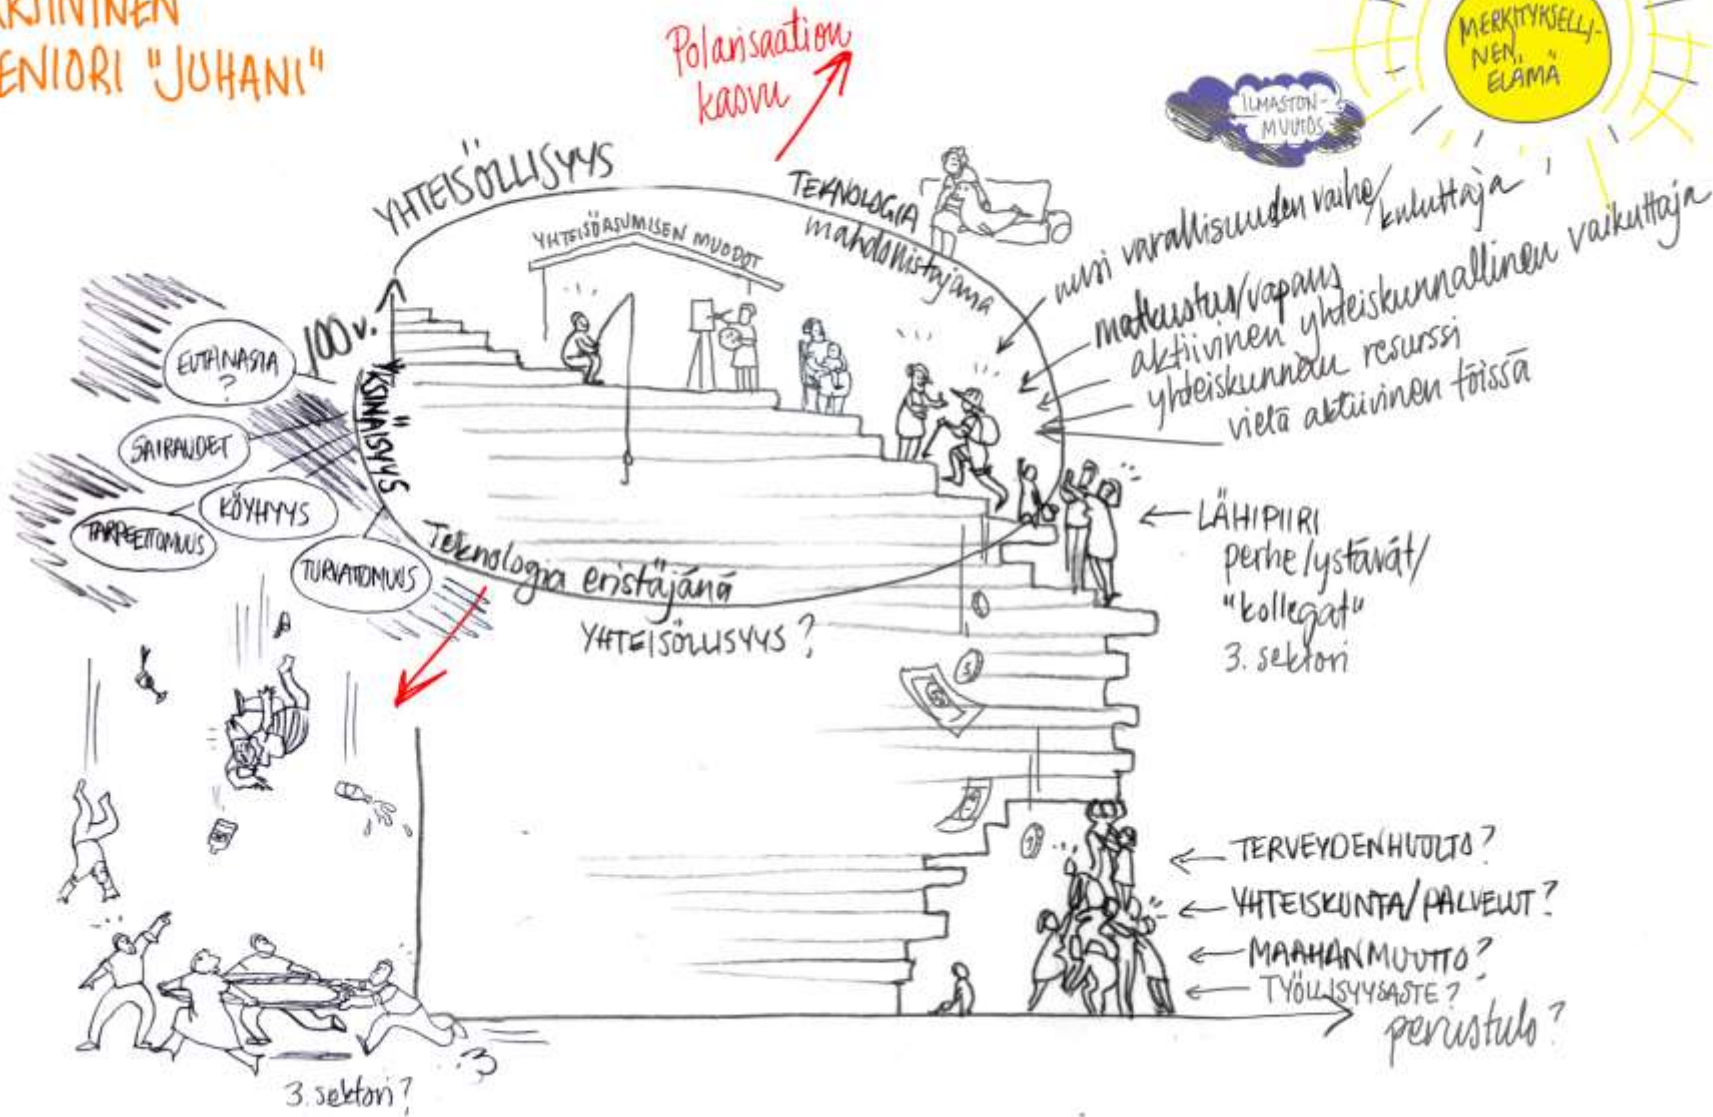 ENIORI "JUHANI"
Polarisaation
kasvu
MERKITYKSELLI-
NEN
ELÄMÄ
ILMASTON-
MUUTOS
YHTEISÖLLISYYS
TEKNOLOGIA
mahdollistajana
YHTEISÖASUMISEN MUODOT
uusi varallisuuden vaihe/kuluttaja
matkustus/vapaus
aktiivinen yhteiskunnallinen vaikuttaja
yhteiskunnan resurssi
vielä aktiivinen töissä
100 v.
YKSINÄISYYS
EUTANASIA
?
SAIRAUDET
KÖYHYYS
TARPEETTOMUUS
TURVATTOMUUS
Teknologia eristäjänä
YHTEISÖLLISYYS?
LÄHIPIIRI
perhe/ystävät/
"kollegat"
3. sektori
TERVEYDENHUOLTO?
YHTEISKUNTA/PALVELUT?
MAAHANMUUTTO?
TYÖLLISYYSASTE?
perustulo?
3. sektori?